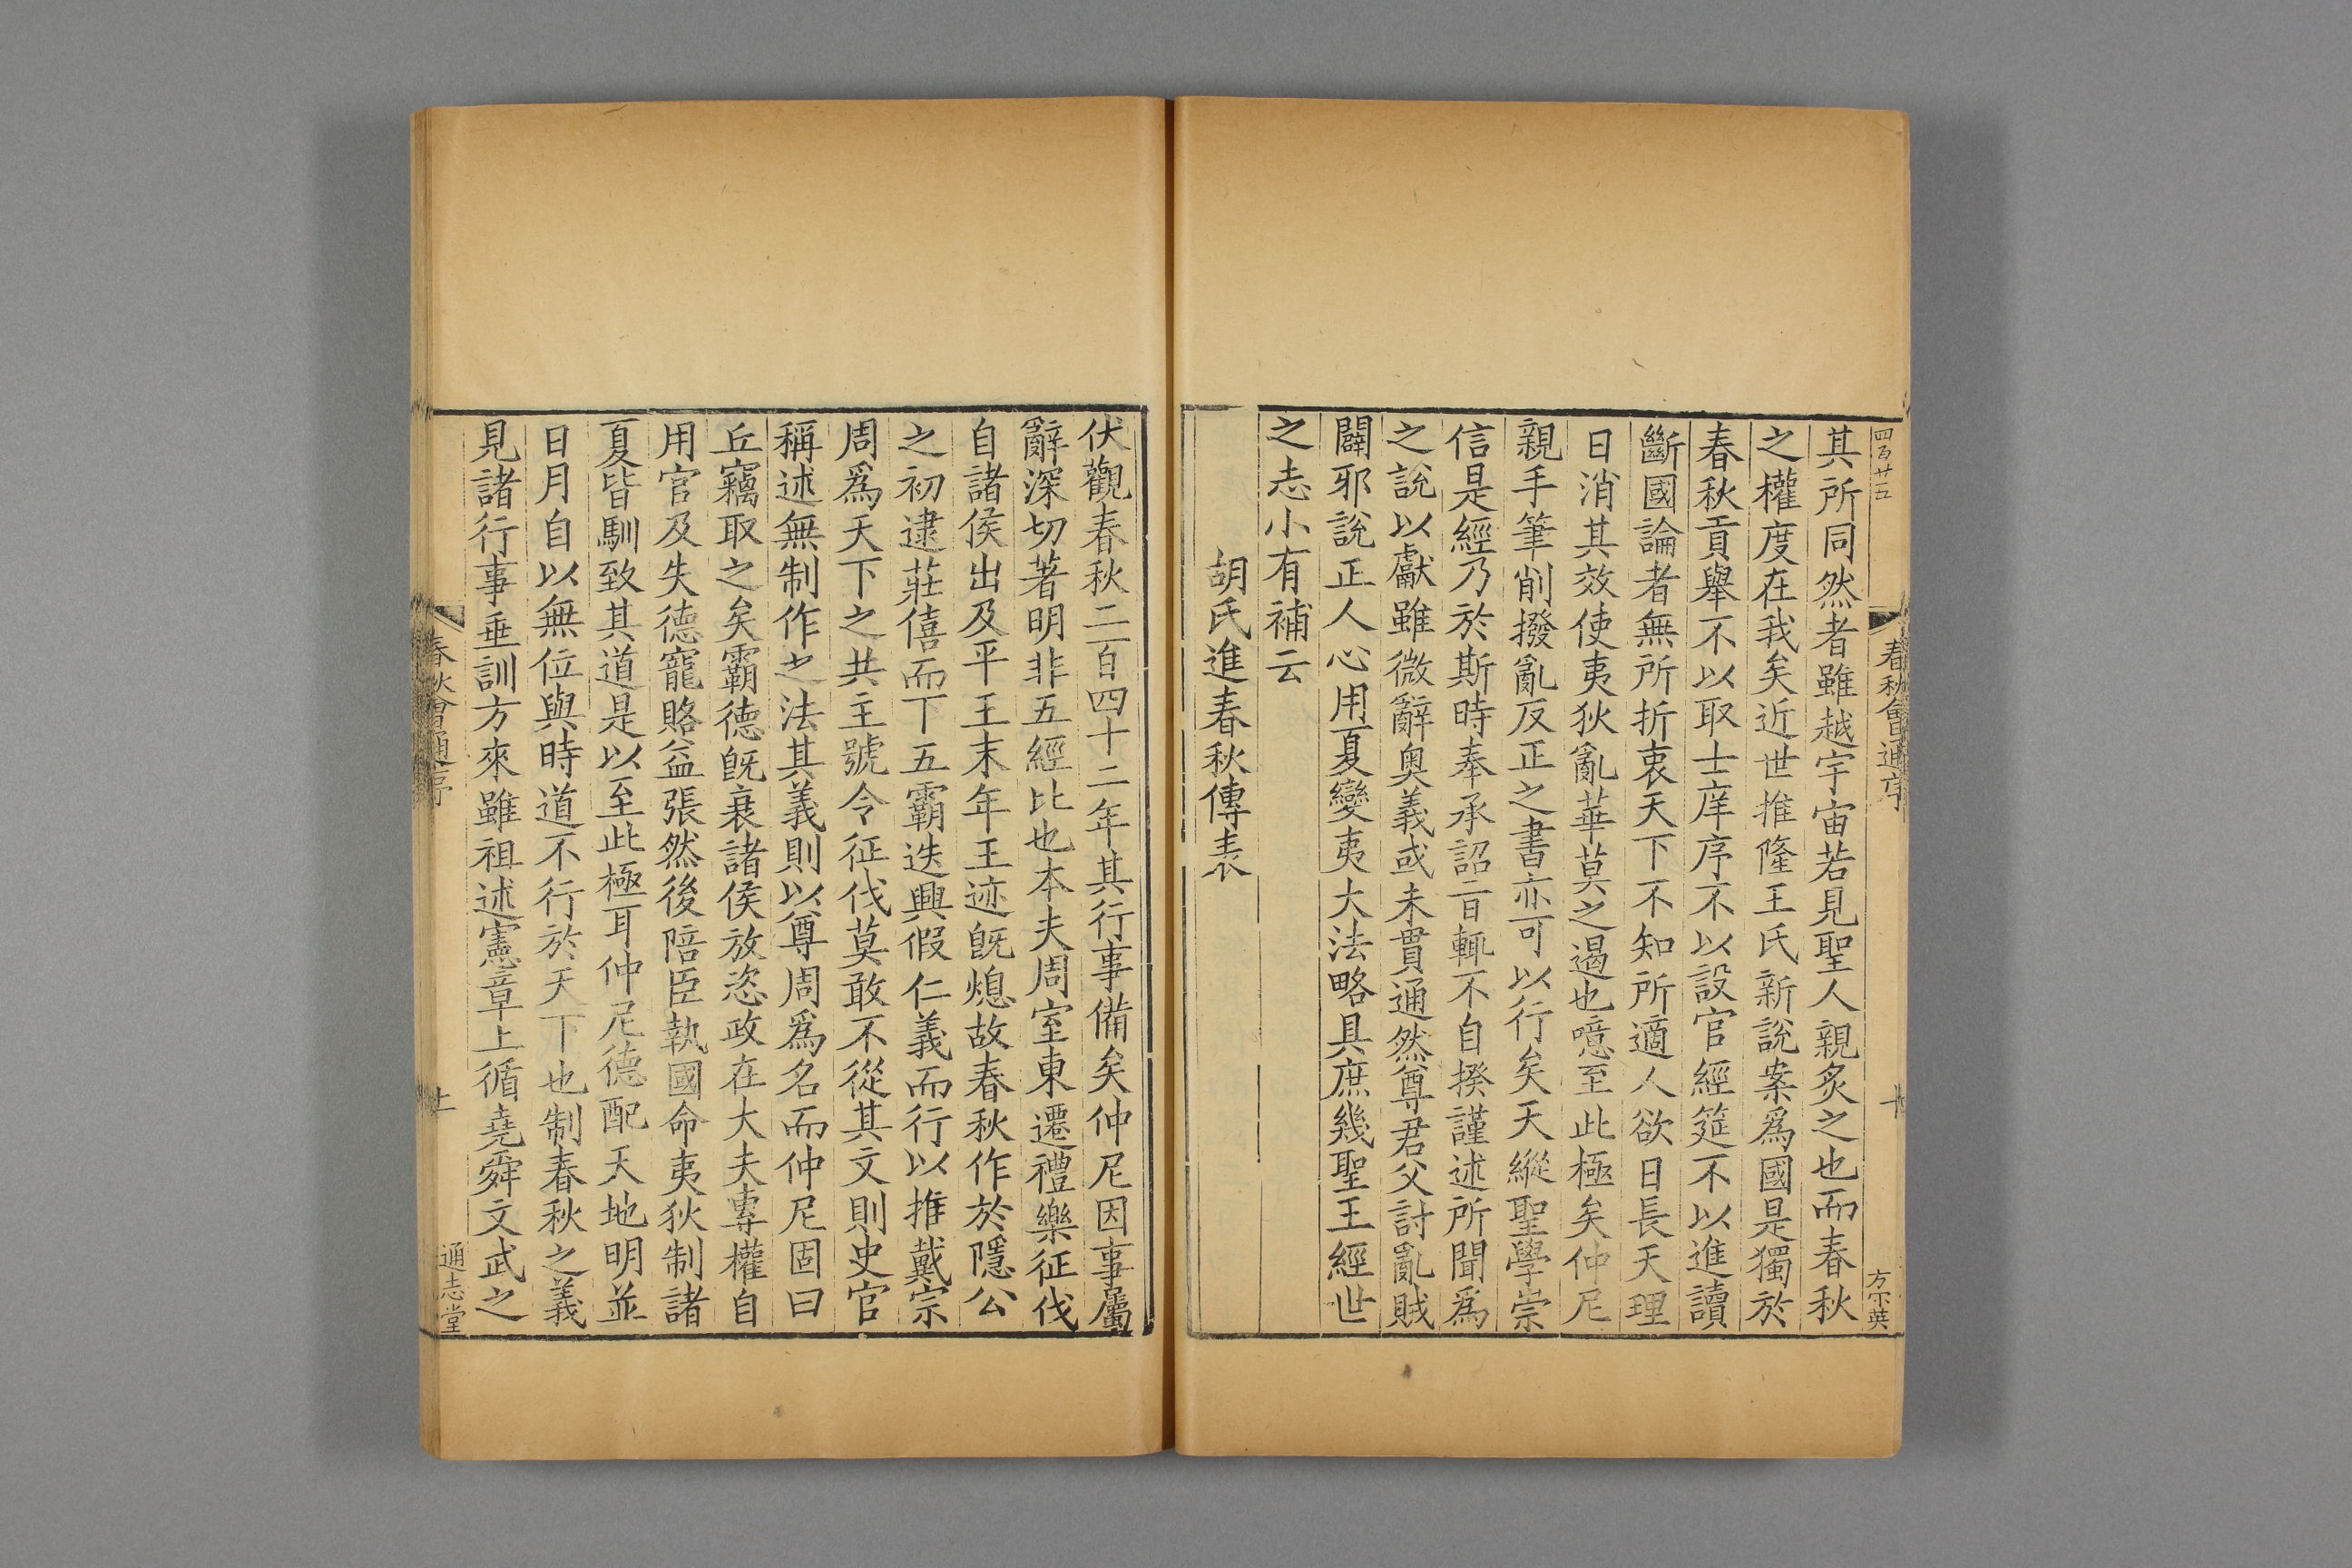 四百廿五
春秋會通序
十
方宗英
其所同然者雖越宇宙若見聖人親炙之也而春秋
之權度在我矣近世推隆王氏新說案爲國是獨於
春秋貢舉不以取士庠序不以設官經筵不以進讀
斷國論者無所折衷天下不知所適人欲日長天理
日消其效使夷狄亂華莫之遏也噫至此極矣仲尼
親手筆削撥亂反正之書亦可以行矣天縱聖學崇
信是經乃於斯時奉承詔旨輒不自揆謹述所聞爲
之說以獻雖微辭奥義或未貫通然尊君父討亂賊
闢邪說正人心用夏變夷大法略具庶幾聖王經世
之志小有補云
胡氏進春秋傳表
伏觀春秋二百四十二年其行事備矣仲尼因事屬
辭深切著明非五經比也本夫周室東遷禮樂征伐
自諸侯出及平王末年王迹旣熄故春秋作於隱公
之初逮莊僖而下五霸迭興假仁義而行以推戴宗
周爲天下之共主號令征伐莫敢不從其文則史官
稱述無制作之法其義則以尊周爲名而仲尼固曰
丘竊取之矣霸德旣衰諸侯放恣政在大夫專權自
用官及失德寵賂益張然後陪臣執國命夷狄制諸
夏皆馴致其道是以至此極耳仲尼德配天地明並
日月自以無位與時道不行於天下也制春秋之義
見諸行事垂訓方來雖祖述憲章上循堯舜文武之
春秋會通序
十一
通志堂